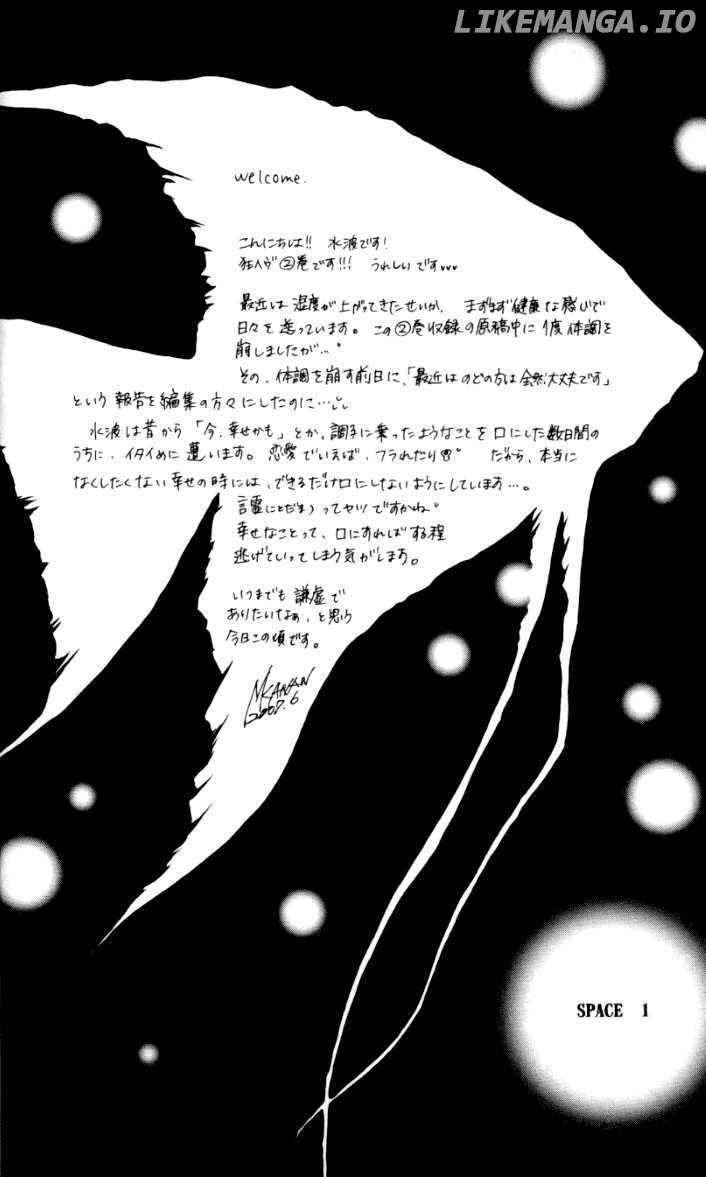 LIKEMANGA.IO
welcome.
こんにちは!! 水波です!
狂へヴ②巻です!!! うれしいです
最近は湿度が上がってきたせいか、ますます健康な勢いで
日々を送っています。この②巻収録の原稿中に1度体調を
崩しましたが…。
その、体調を崩す前日に、「最近はのどの方は全然大丈夫です」
という報告を編集の方々にしたのに…
水波は昔から「今、幸せかも」とか、調子に乗ったようなことを口にした数日間の
うちに、イタイめに遭います。恋愛でいえば、フラれたり だから、本当に
なくしたくない幸せの時には、できるだけ口にしないようにしています…。
言霊(ことだま)ってヤツですかね。
幸せなことって、口にすればする程
逃げていってしまう気がします。
いつまでも謙虚で
ありたいなぁ、と思う
今日この頃です。
SPACE 1